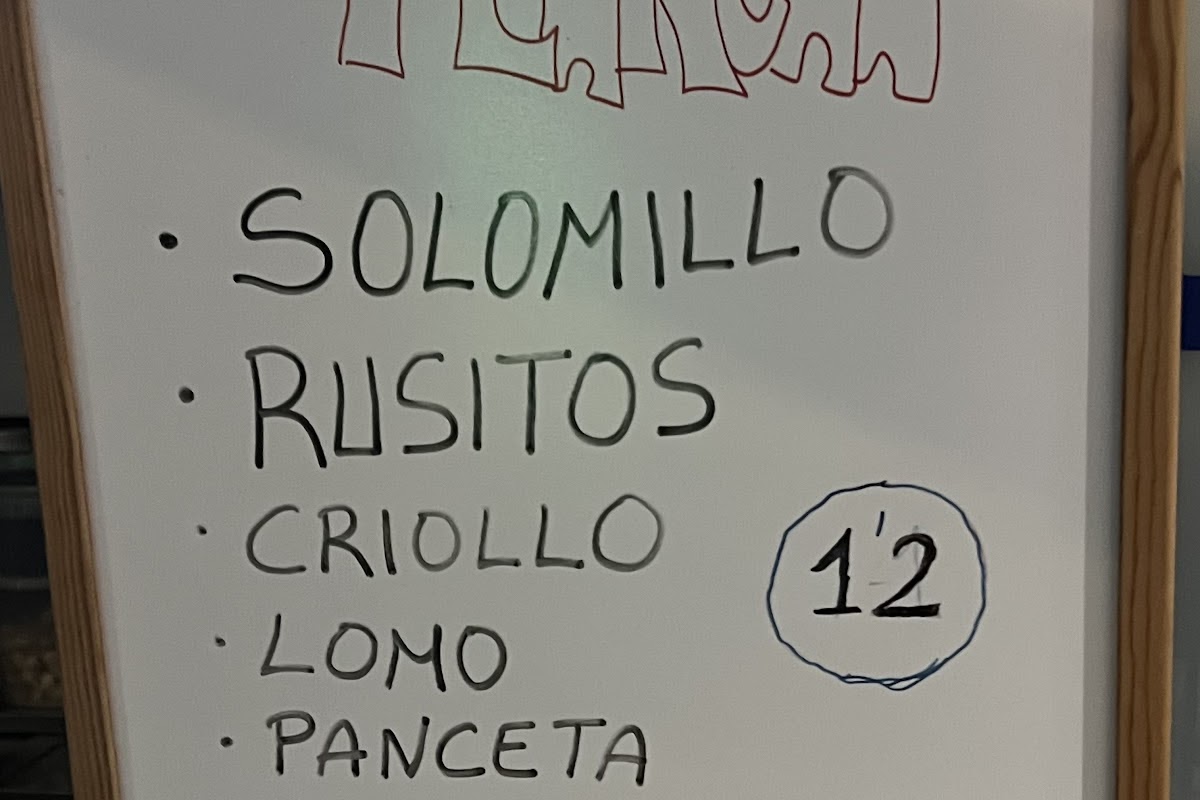 · SOLOMILLO
· RUSITOS
· CRIOLLO
1'2
· LOMO
· PANCETA